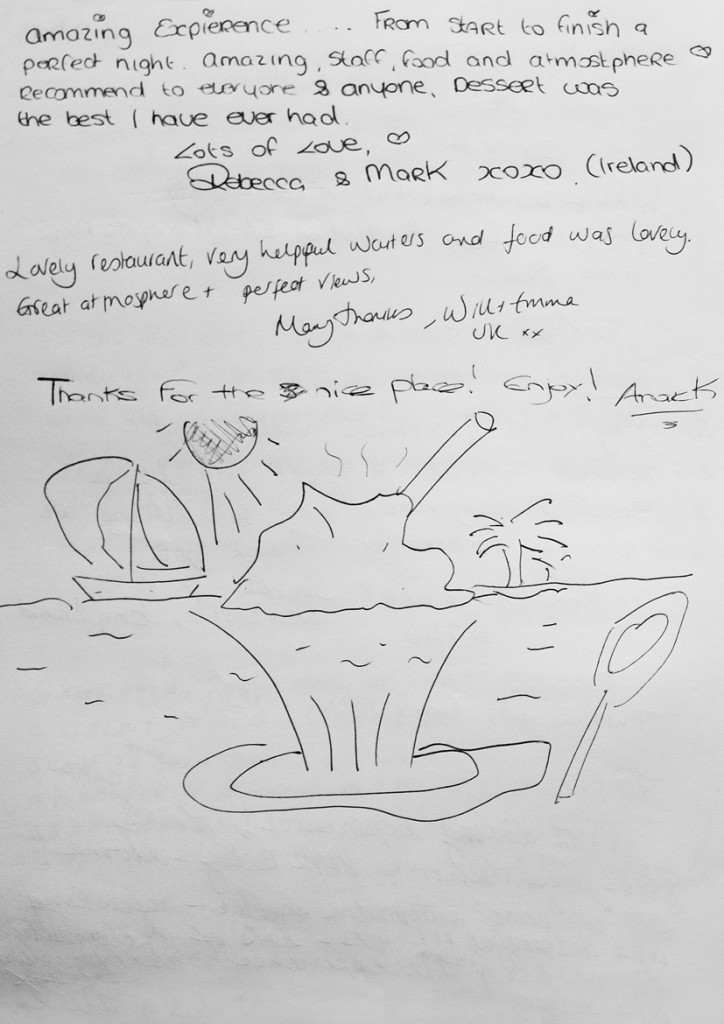 amazing Expierence .... From START to finish a
perfect night. amazing, staff, food and atmostphere ♡
Recommend to everyone & anyone. Dessert was
the best I have ever had.
Lots of Love, ♡
Rebecca & Mark xoxo. (Ireland)
Lovely restaurant, very helpful waiters and food was lovely.
Great atmosphere + perfect views,
Many thanks, Will + Emma
UK xx
Thanks for the nice place! Enjoy!